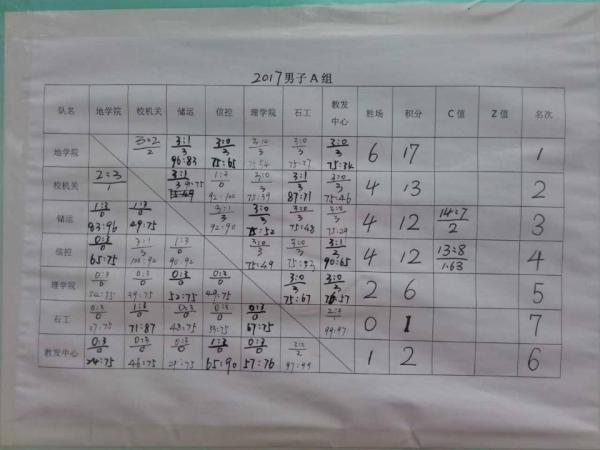 2017男子A组
队名 地学院 校机关 储运 信控 理学院 石工 教发中心 胜场 积分 C值 Z值 名次
地学院 3=2/2 3:1/3 96:83 3:0/3 75:65 3:0/3 75:54 3:0/3 3:0/3 6 17 1
校机关 2=3/1 3:1/3 3:1/3 3:0/3 75:39 3:1/3 87:71 3:0/3 75:46 4 13 2
储运 1:3/0 83:96 1:3/0 49:75 3:1/3 92:90 3:0/3 75:52 3:0/3 75:48 3:0/3 75:29 4 12 14=7/2 3
信控 0:3/0 65:75 3:1/3 1:3/0 90:92 3:0/3 75:49 3:0/3 3:1/3 90:65 4 12 13=8/1.63 4
理学院 0:3/0 0:3/0 39:75 0:3/0 52:75 0:3/0 49:75 3:0/3 75:67 3:0/3 76:57 2 6 5
石工 0:3/0 1:3/0 71:87 0:3/0 48:75 0:3/0 0:3/0 67:75 99:97 0 1 7
教发中心 0:3/0 0:3/0 46:75 0:3/0 29:75 1:3/0 65:90 0:3/0 57:76 97:99 1 2 6